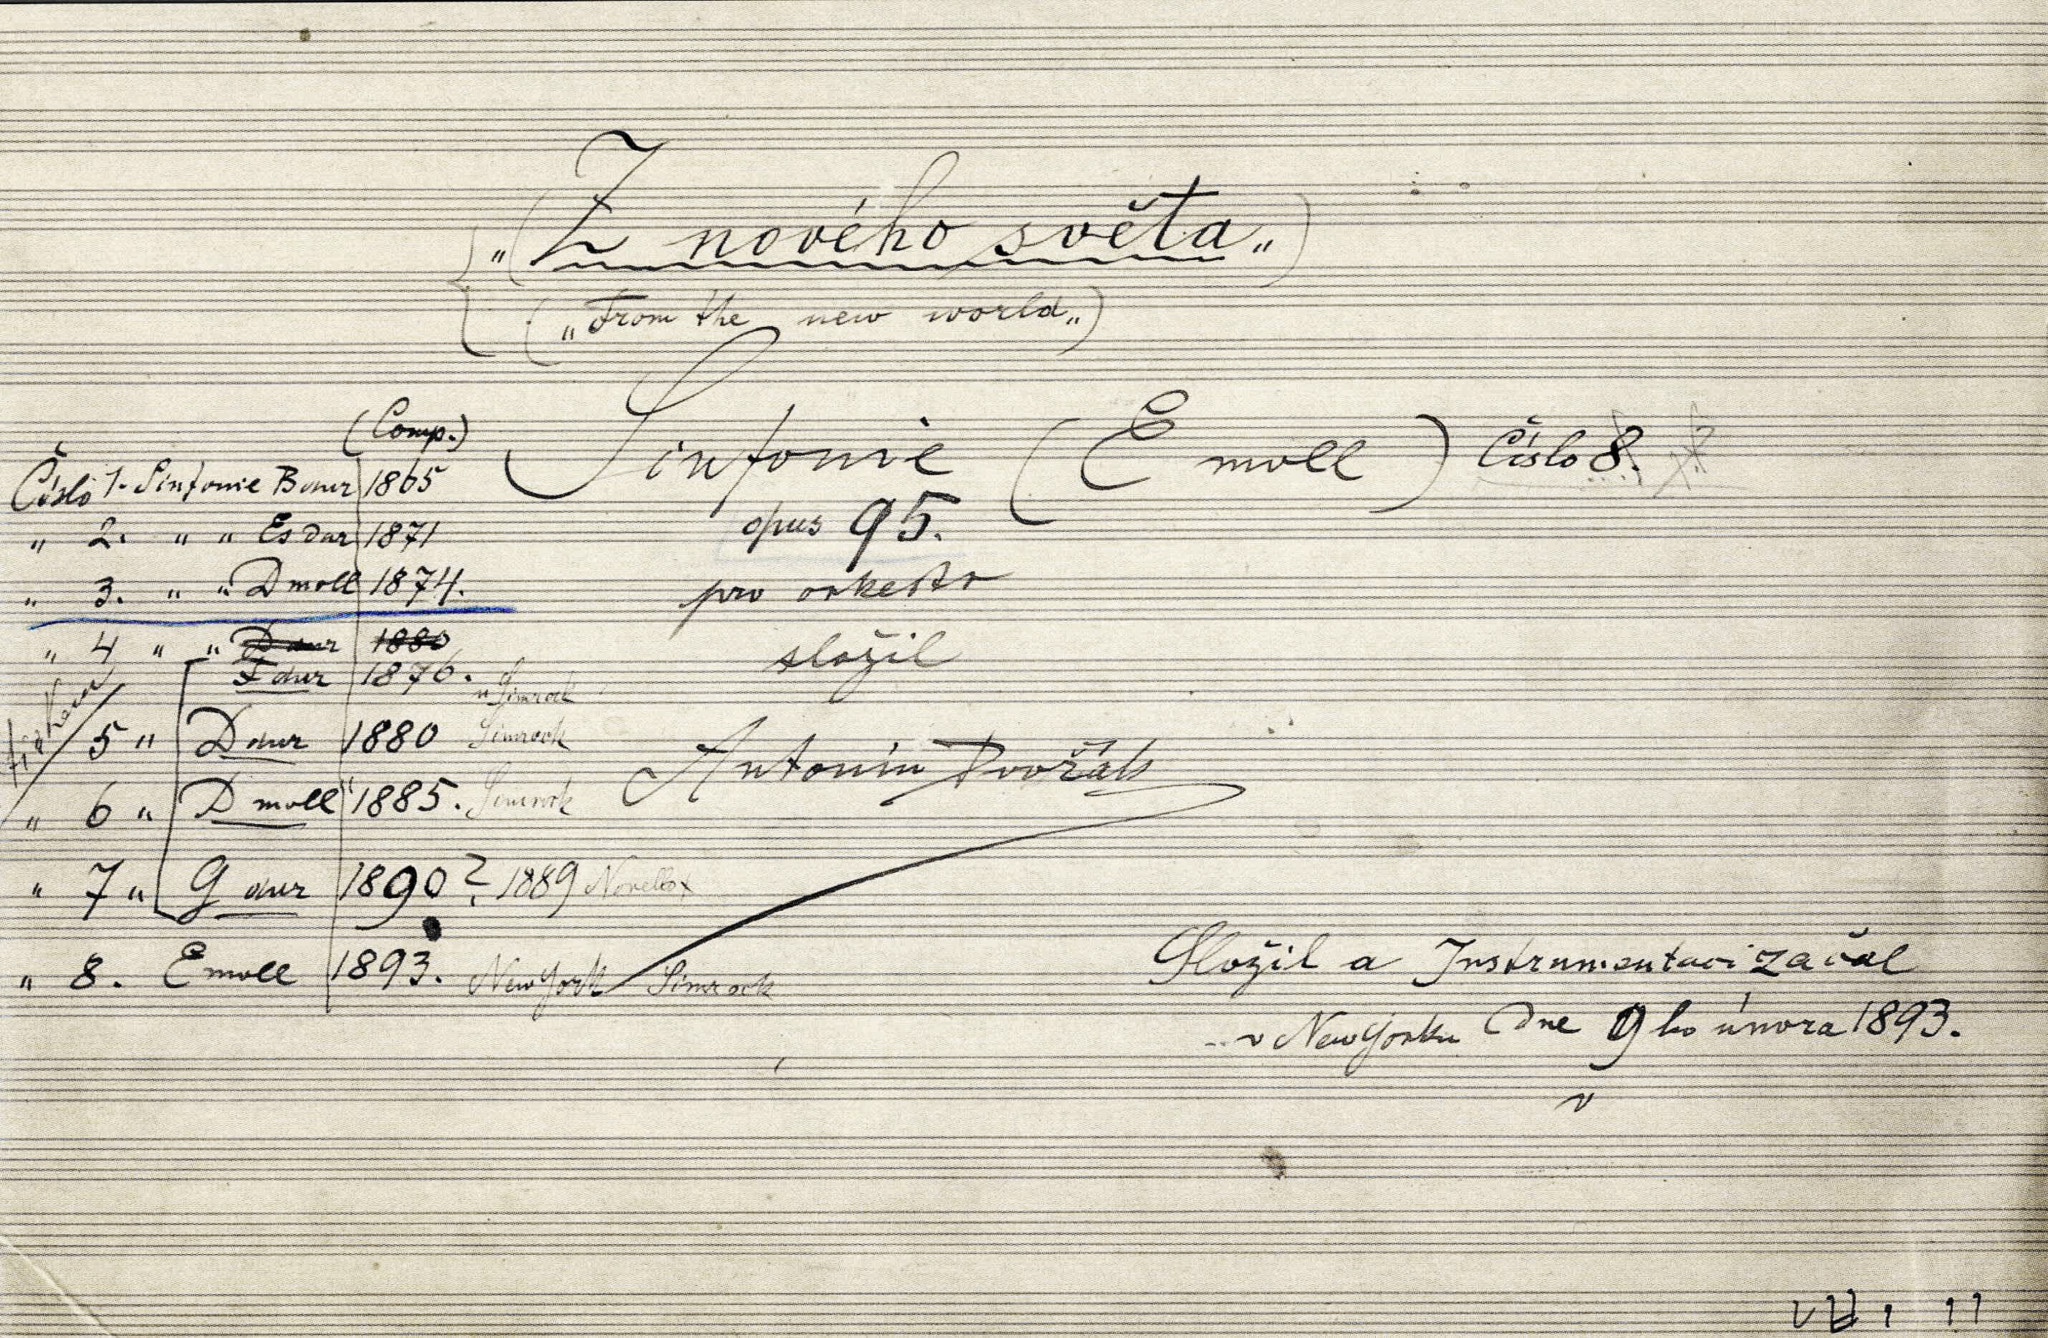 „Z nového světa„
(„From the new world„)
Sinfonie (E moll) Číslo 8.
opus 95.
pro orkestr
složil
Antonín Dvořák
(Comp.)
Číslo 1. Sinfonie B dur 1865
„ 2. „ „ Es dur 1871
„ 3. „ „ D moll 1874.
„ 4 „ „ D dur 1880
F dur 1876. u Simrock
5 „ D dur 1880 Simrock
„ 6 „ D moll 1885. Simrock
„ 7 „ G dur 1890? 1889 Novello
„ 8. E moll 1893. New York Simrock
Složil a Instrumentaci začal
v New Yorku dne 9ho února 1893.